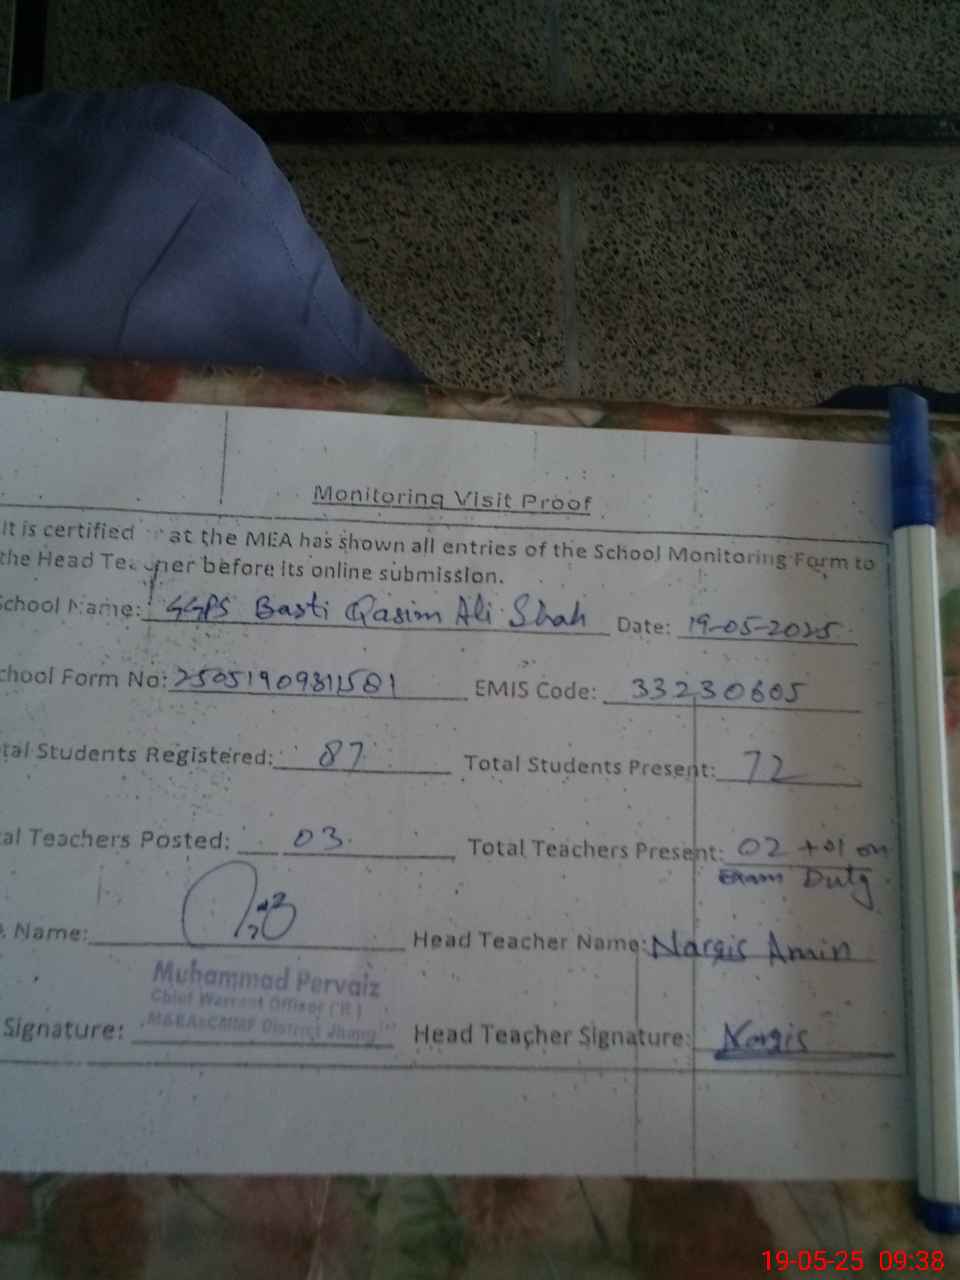 Monitoring Visit Proof
It is certified at the MEA has shown all entries of the School Monitoring Form to
the Head before its online submission.
School Name: GGPS Basti Qasim Ali Shah Date: 19-05-2025
chool Form No: EMIS Code: 33230605
tal Students Registered: 87 Total Students Present: 72
al Teachers Posted: 03 Total Teachers Present: 02 + 01 on
Exam Duty
Name: Head Teacher Name: Nargis Amin
Muhammad Pervaiz
Chief Warrant Officer (R)
District Jhang
Signature: Head Teacher Signature: Nargis
19-05-25 09:38